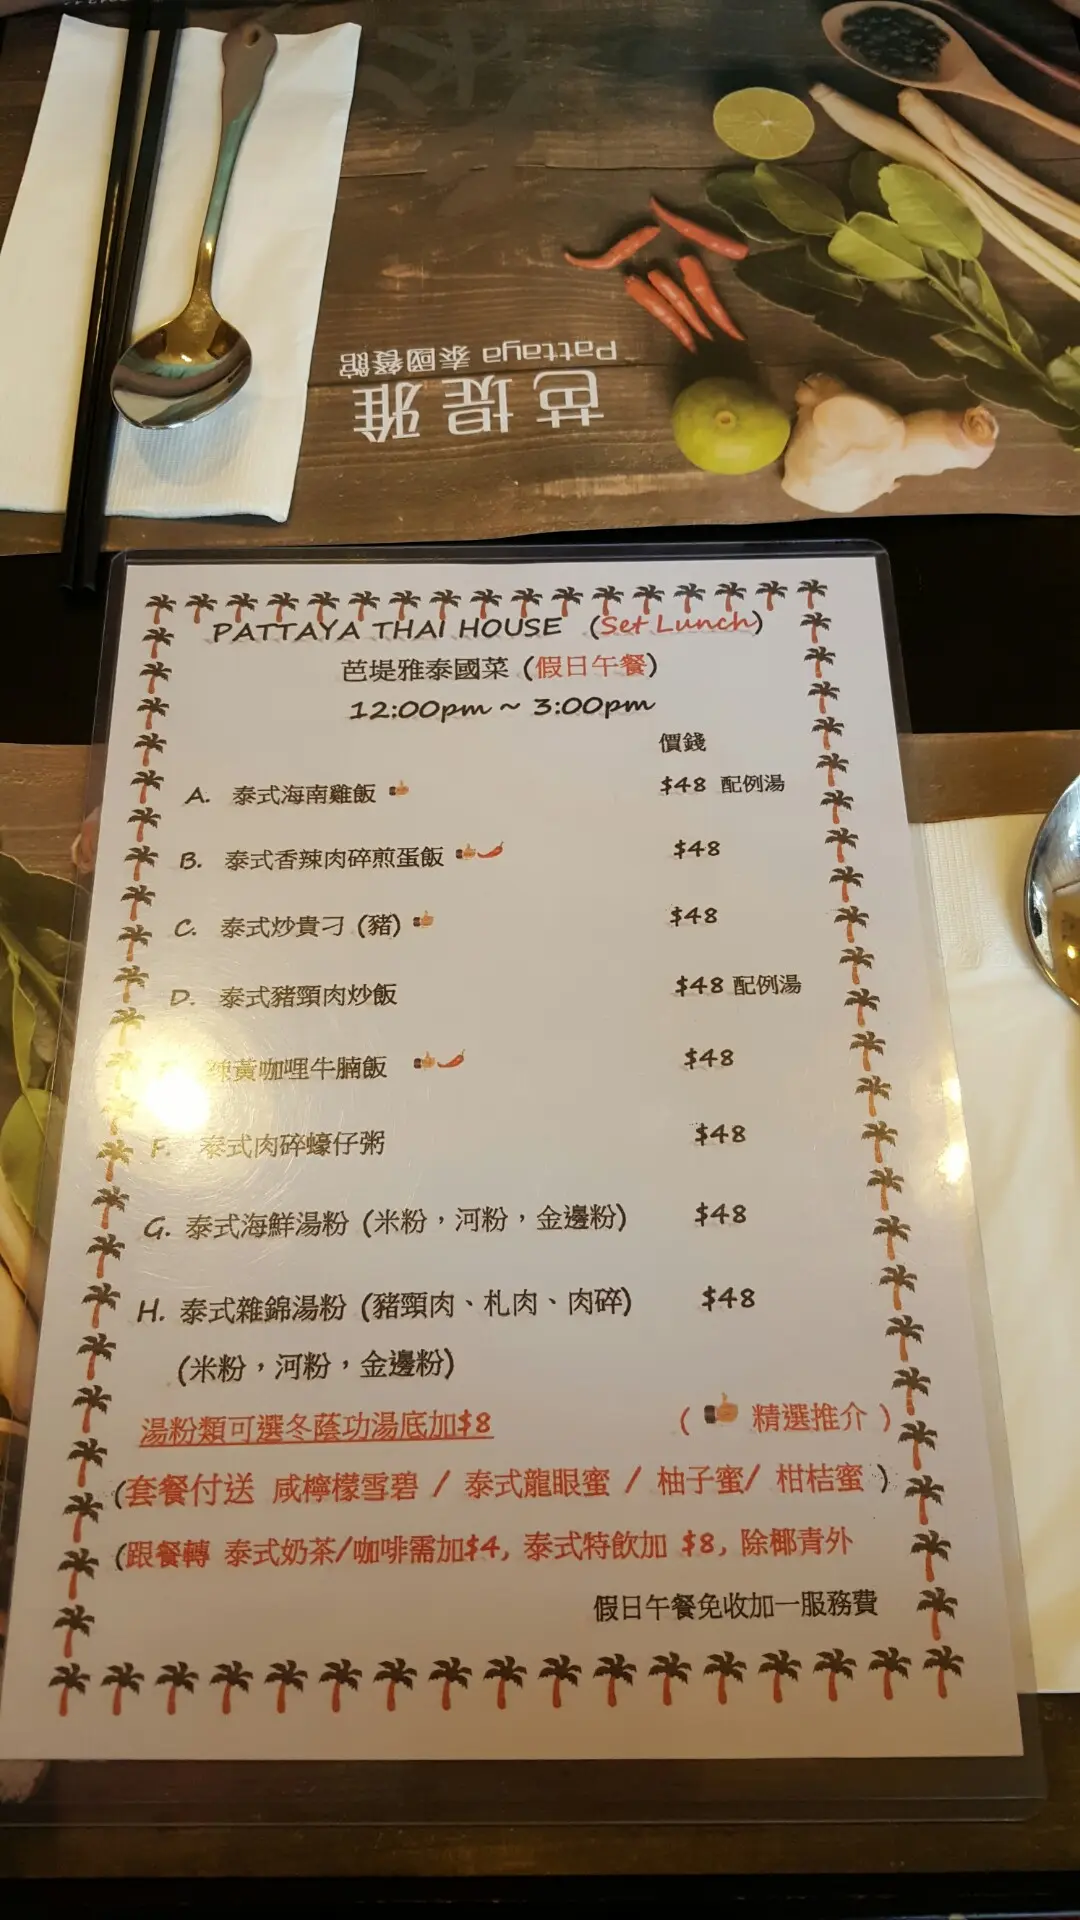 芭堤雅
Pattaya 泰國餐館
PATTAYA THAI HOUSE (Set Lunch)
芭堤雅泰國菜 (假日午餐)
12:00pm ~ 3:00pm
價錢
A. 泰式海南雞飯 $48 配例湯
B. 泰式香辣肉碎煎蛋飯 $48
C. 泰式炒貴刁 (豬) $48
D. 泰式豬頸肉炒飯 $48 配例湯
黃咖哩牛腩飯 $48
F. 泰式肉碎蠔仔粥 $48
G. 泰式海鮮湯粉 (米粉，河粉，金邊粉) $48
H. 泰式雜錦湯粉 (豬頸肉、札肉、肉碎) $48
(米粉，河粉，金邊粉)
湯粉類可選冬蔭功湯底加$8 ( 精選推介 )
(套餐付送 咸檸檬雪碧 / 泰式龍眼蜜 / 柚子蜜/ 柑桔蜜 )
(跟餐轉 泰式奶茶/咖啡需加$4, 泰式特飲加 $8, 除椰青外
假日午餐免收加一服務費